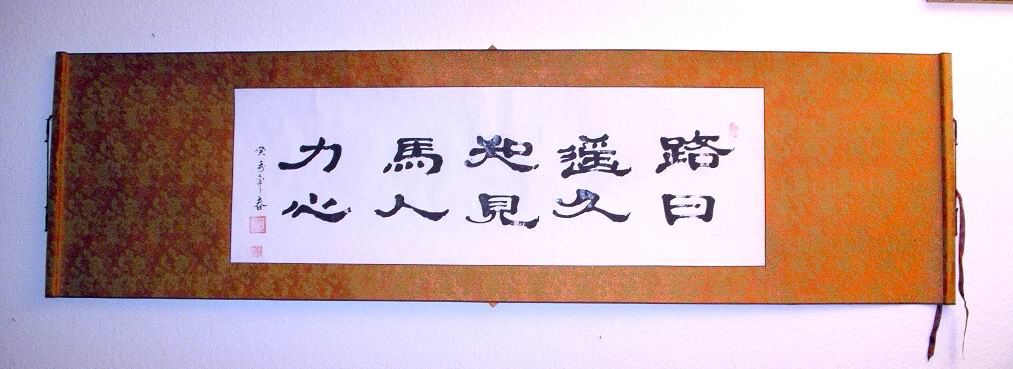 路遥知馬力
日久見人心
癸未年春